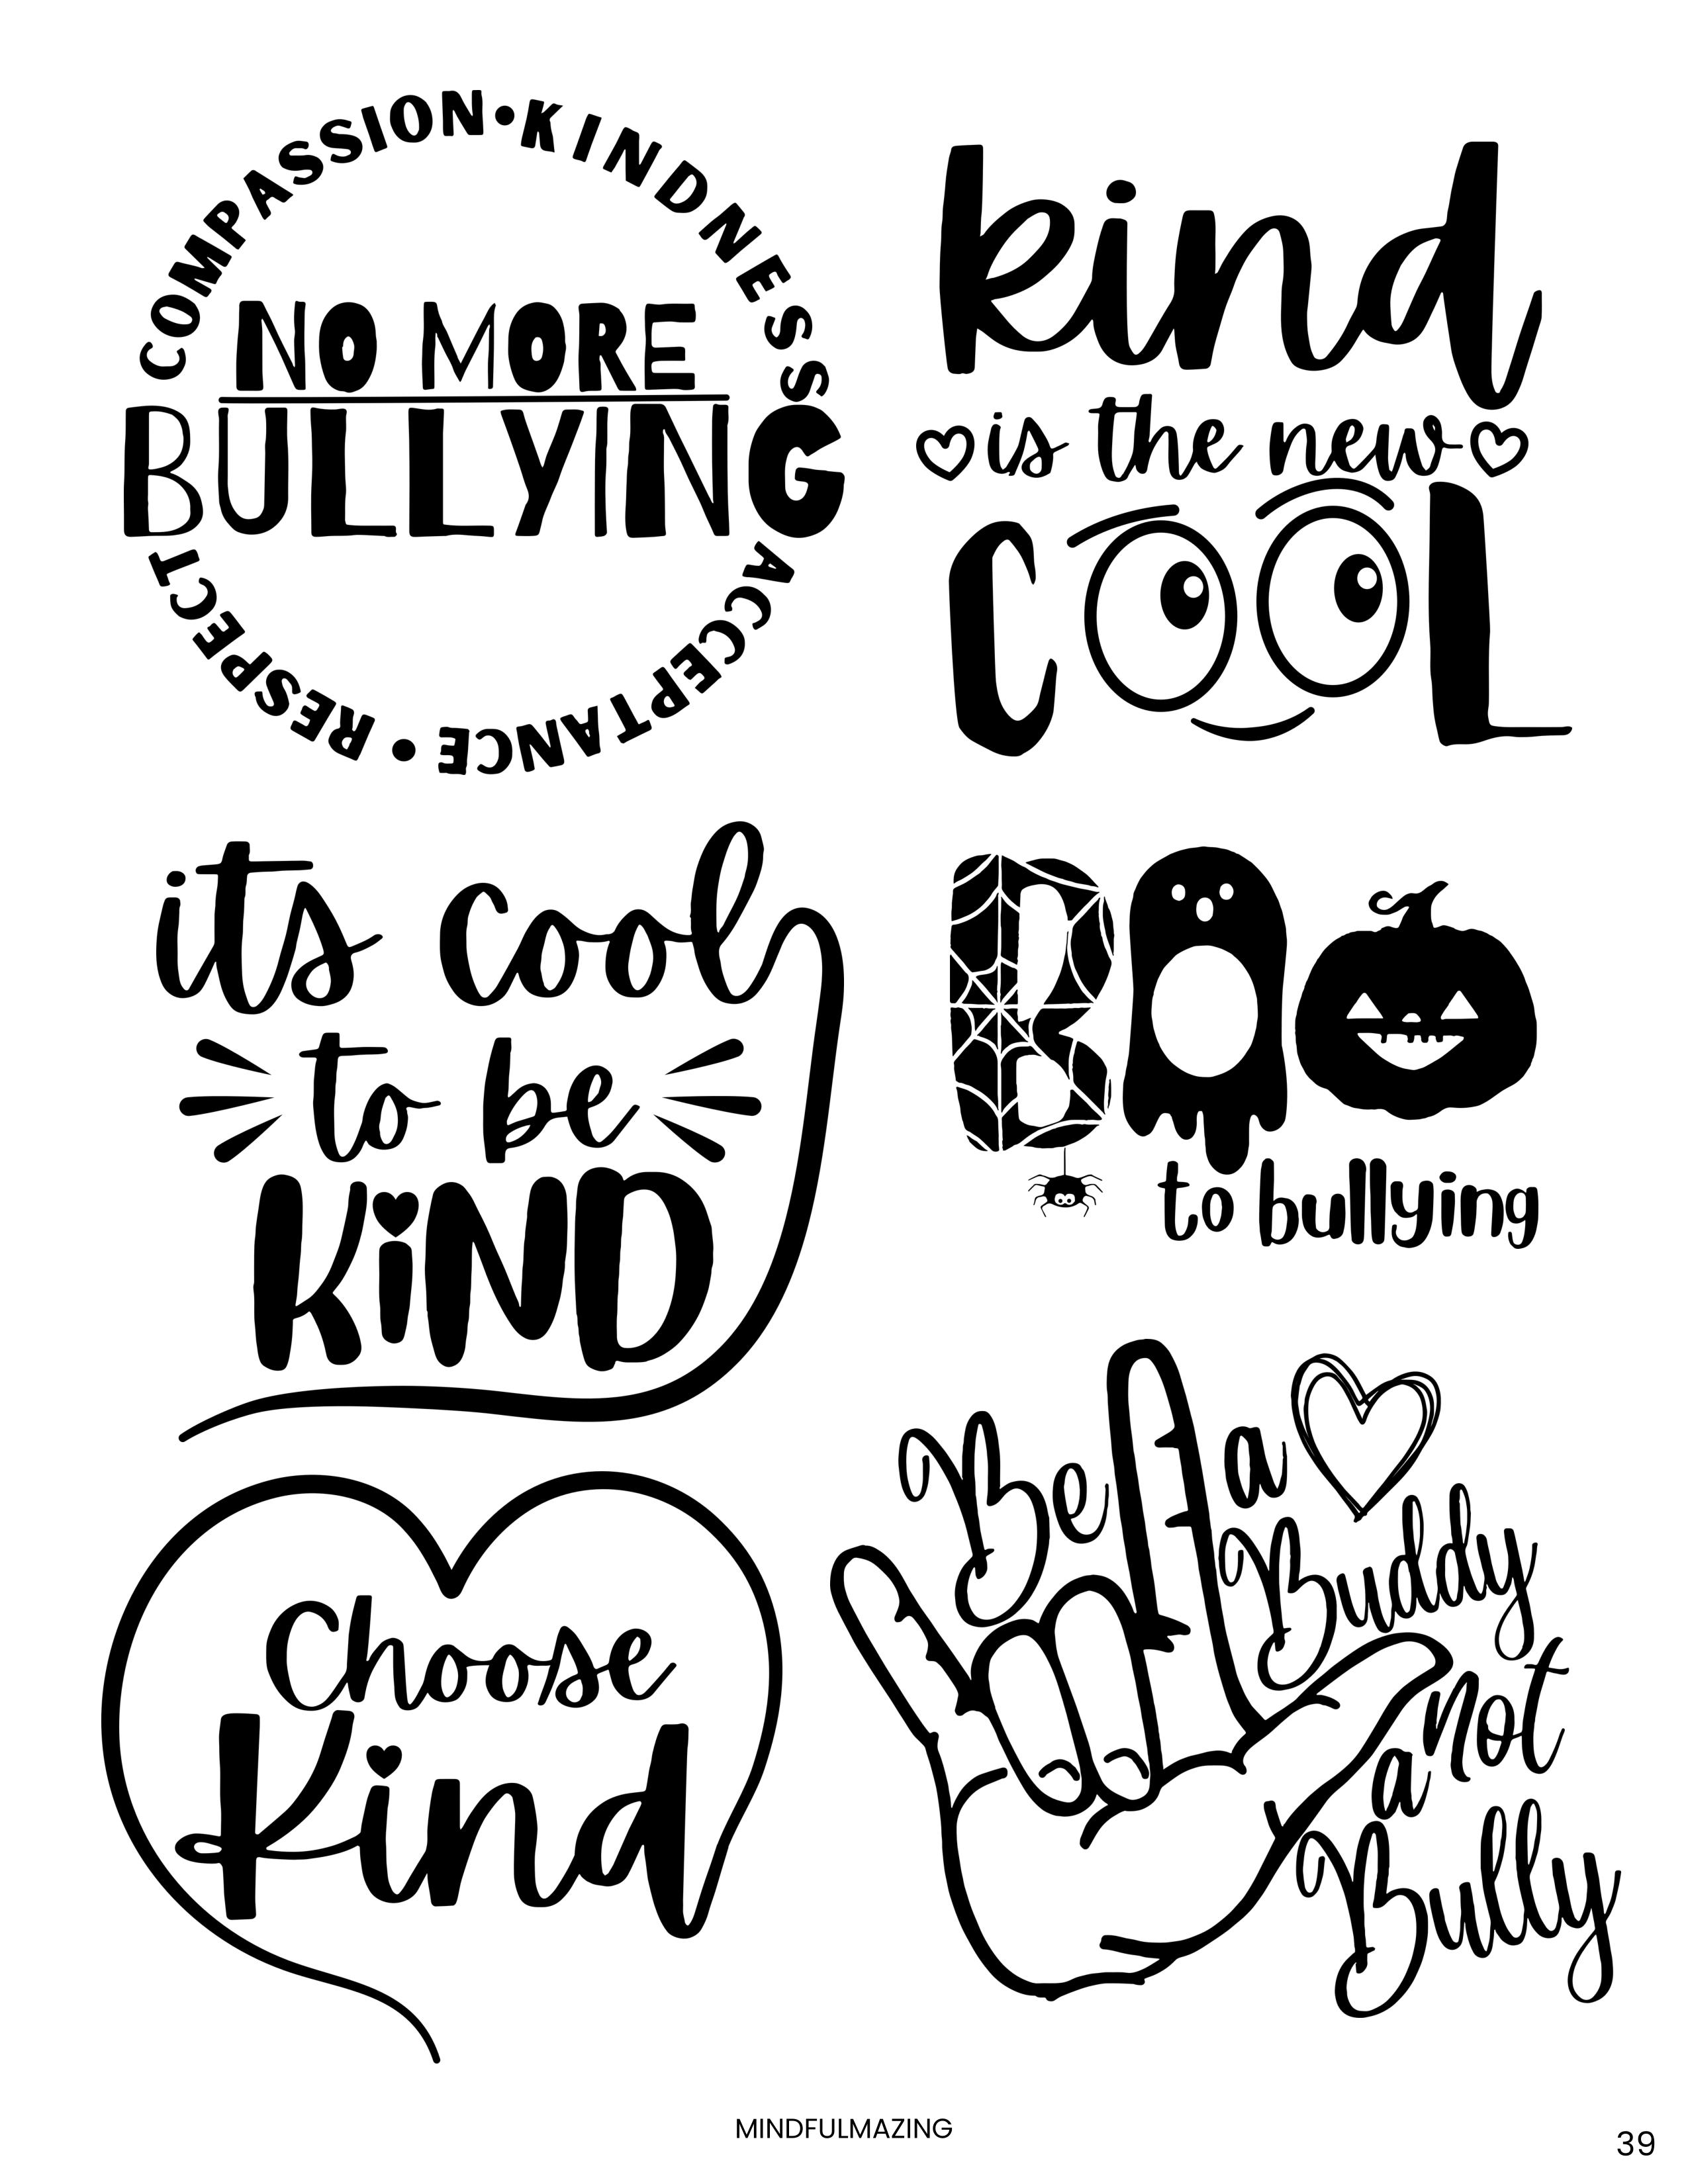 COMPASSION • KINDNESS
NO MORE
BULLYING
ACCEPTANCE • RESPECT
kind
is the new
COOL
its cool
to be
KiND
BOO
to bullying
Choose
Kind
Be A a
Buddy
not
a
Bully
MINDFULMAZING
39